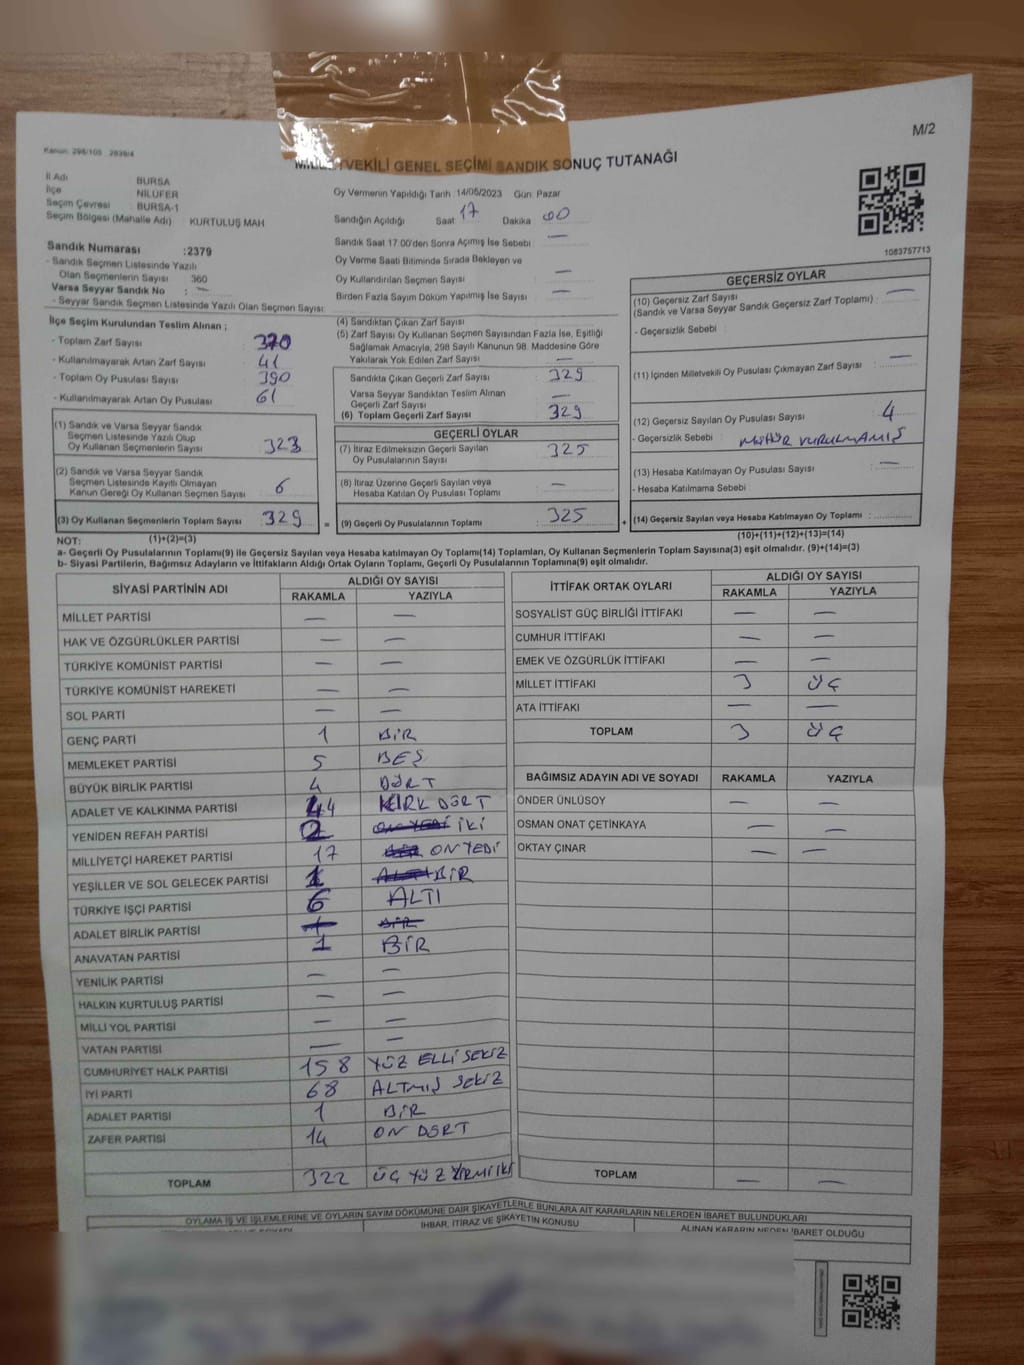 M/2
Kanun: 298/105 , 2839/4
TVEKİLİ GENEL SEÇİMİ SANDIK SONUÇ TUTANAĞI
İl Adı BURSA
İlçe NİLÜFER
Seçim Çevresi BURSA-1
Seçim Bölgesi (Mahalle Adı) KURTULUŞ MAH
Oy Vermenin Yapıldığı Tarih 14/05/2023 Gün: Pazar
Sandığın Açıldığı Saat 17 Dakika 00
Sandık Saat 17.00'den Sonra Açmış İse Sebebi —
Oy Verme Saati Bitiminde Sırada Bekleyen ve
Oy Kullandırılan Seçmen Sayısı —
Birden Fazla Sayım Döküm Yapılmış İse Sayısı —
1083757713
Sandık Numarası :2379
- Sandık Seçmen Listesinde Yazılı
Olan Seçmenlerin Sayısı 360
Varsa Seyyar Sandık No : —
- Seyyar Sandık Seçmen Listesinde Yazılı Olan Seçmen Sayısı:
İlçe Seçim Kurulundan Teslim Alınan ;
- Toplam Zarf Sayısı : 370
- Kullanılmayarak Artan Zarf Sayısı : 41
- Toplam Oy Pusulası Sayısı : 390
- Kullanılmayarak Artan Oy Pusulası : 61
(1) Sandık ve Varsa Seyyar Sandık
Seçmen Listesinde Yazılı Olup
Oy Kullanan Seçmenlerin Sayısı 323
(2) Sandık ve Varsa Seyyar Sandık
Seçmen Listesinde Kayıtlı Olmayan
Kanun Gereği Oy Kullanan Seçmen Sayısı 6
(3) Oy Kullanan Seçmenlerin Toplam Sayısı 329
(4) Sandıktan Çıkan Zarf Sayısı
(5) Zarf Sayısı Oy Kullanan Seçmen Sayısından Fazla İse, Eşitliği
Sağlamak Amacıyla, 298 Sayılı Kanunun 98. Maddesine Göre
Yakılarak Yok Edilen Zarf Sayısı —
Sandıkta Çıkan Geçerli Zarf Sayısı 329
Varsa Seyyar Sandıktan Teslim Alınan
Geçerli Zarf Sayısı —
(6) Toplam Geçerli Zarf Sayısı 329
GEÇERLİ OYLAR
(7) İtiraz Edilmeksizin Geçerli Sayılan
Oy Pusulalarının Sayısı 325
(8) İtiraz Üzerine Geçerli Sayılan veya
Hesaba Katılan Oy Pusulası Toplamı —
= (9) Geçerli Oy Pusulalarının Toplamı 325 +
GEÇERSİZ OYLAR
(10) Geçersiz Zarf Sayısı
(Sandık ve Varsa Seyyar Sandık Geçersiz Zarf Toplamı) : —
- Geçersizlik Sebebi :
(11) İçinden Milletvekili Oy Pusulası Çıkmayan Zarf Sayısı : —
(12) Geçersiz Sayılan Oy Pusulası Sayısı : 4
- Geçersizlik Sebebi : MÜHÜR VURULMAMIŞ
(13) Hesaba Katılmayan Oy Pusulası Sayısı : —
- Hesaba Katılmama Sebebi :
(14) Geçersiz Sayılan veya Hesaba Katılmayan Oy Toplamı :
NOT: (1)+(2)=(3) (10)+(11)+(12)+(13)=(14)
a- Geçerli Oy Pusulalarının Toplamı(9) ile Geçersiz Sayılan veya Hesaba katılmayan Oy Toplamı(14) Toplamları, Oy Kullanan Seçmenlerin Toplam Sayısına(3) eşit olmalıdır. (9)+(14)=(3)
b- Siyasi Partilerin, Bağımsız Adayların ve İttifakların Aldığı Ortak Oyların Toplamı, Geçerli Oy Pusulalarının Toplamına(9) eşit olmalıdır.
SİYASİ PARTİNİN ADI ALDIĞI OY SAYISI
RAKAMLA YAZIYLA
MİLLET PARTİSİ — —
HAK VE ÖZGÜRLÜKLER PARTİSİ — —
TÜRKİYE KOMÜNİST PARTİSİ — —
TÜRKİYE KOMÜNİST HAREKETİ — —
SOL PARTİ — —
GENÇ PARTİ 1 BİR
MEMLEKET PARTİSİ 5 BEŞ
BÜYÜK BİRLİK PARTİSİ 4 DÖRT
ADALET VE KALKINMA PARTİSİ 44 KIRK DÖRT
YENİDEN REFAH PARTİSİ 2 ON YEDİ İKİ
MİLLİYETÇİ HAREKET PARTİSİ 17 BİR ON YEDİ
YEŞİLLER VE SOL GELECEK PARTİSİ 1 ALTI BİR
TÜRKİYE İŞÇİ PARTİSİ 6 ALTI
ADALET BİRLİK PARTİSİ 1 BİR
ANAVATAN PARTİSİ 1 BİR
YENİLİK PARTİSİ — —
HALKIN KURTULUŞ PARTİSİ — —
MİLLİ YOL PARTİSİ — —
VATAN PARTİSİ — —
CUMHURİYET HALK PARTİSİ 158 YÜZ ELLİ SEKİZ
İYİ PARTİ 68 ALTMIŞ SEKİZ
ADALET PARTİSİ 1 BİR
ZAFER PARTİSİ 14 ON DÖRT
TOPLAM 322 ÜÇ YÜZ YİRMİ İKİ
İTTİFAK ORTAK OYLARI ALDIĞI OY SAYISI
RAKAMLA YAZIYLA
SOSYALİST GÜÇ BİRLİĞİ İTTİFAKI — —
CUMHUR İTTİFAKI — —
EMEK VE ÖZGÜRLÜK İTTİFAKI — —
MİLLET İTTİFAKI 3 ÜÇ
ATA İTTİFAKI — —
TOPLAM 3 ÜÇ
BAĞIMSIZ ADAYIN ADI VE SOYADI RAKAMLA YAZIYLA
ÖNDER ÜNLÜSOY — —
OSMAN ONAT ÇETİNKAYA — —
OKTAY ÇINAR — —
TOPLAM — —
OYLAMA İŞ VE İŞLEMLERİNE VE OYLARIN SAYIM DÖKÜMÜNE DAİR ŞİKAYETLERLE BUNLARA AİT KARARLARIN NELERDEN İBARET BULUNDUKLARI
İHBAR, İTİRAZ VE ŞİKAYETİN KONUSU ALINAN KARARIN NEDEN İBARET OLDUĞU